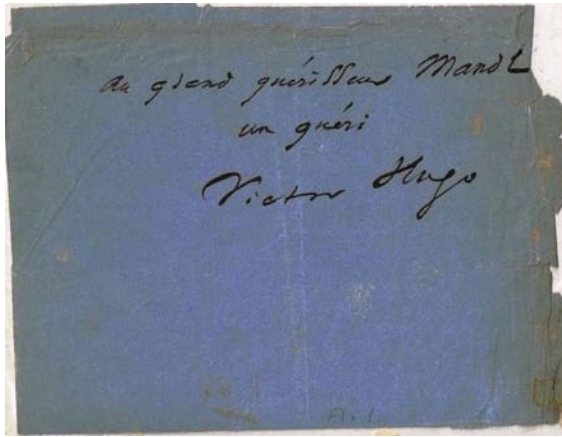 au grand guérisseur Mandl
un guéri
Victor Hugo
A.1.